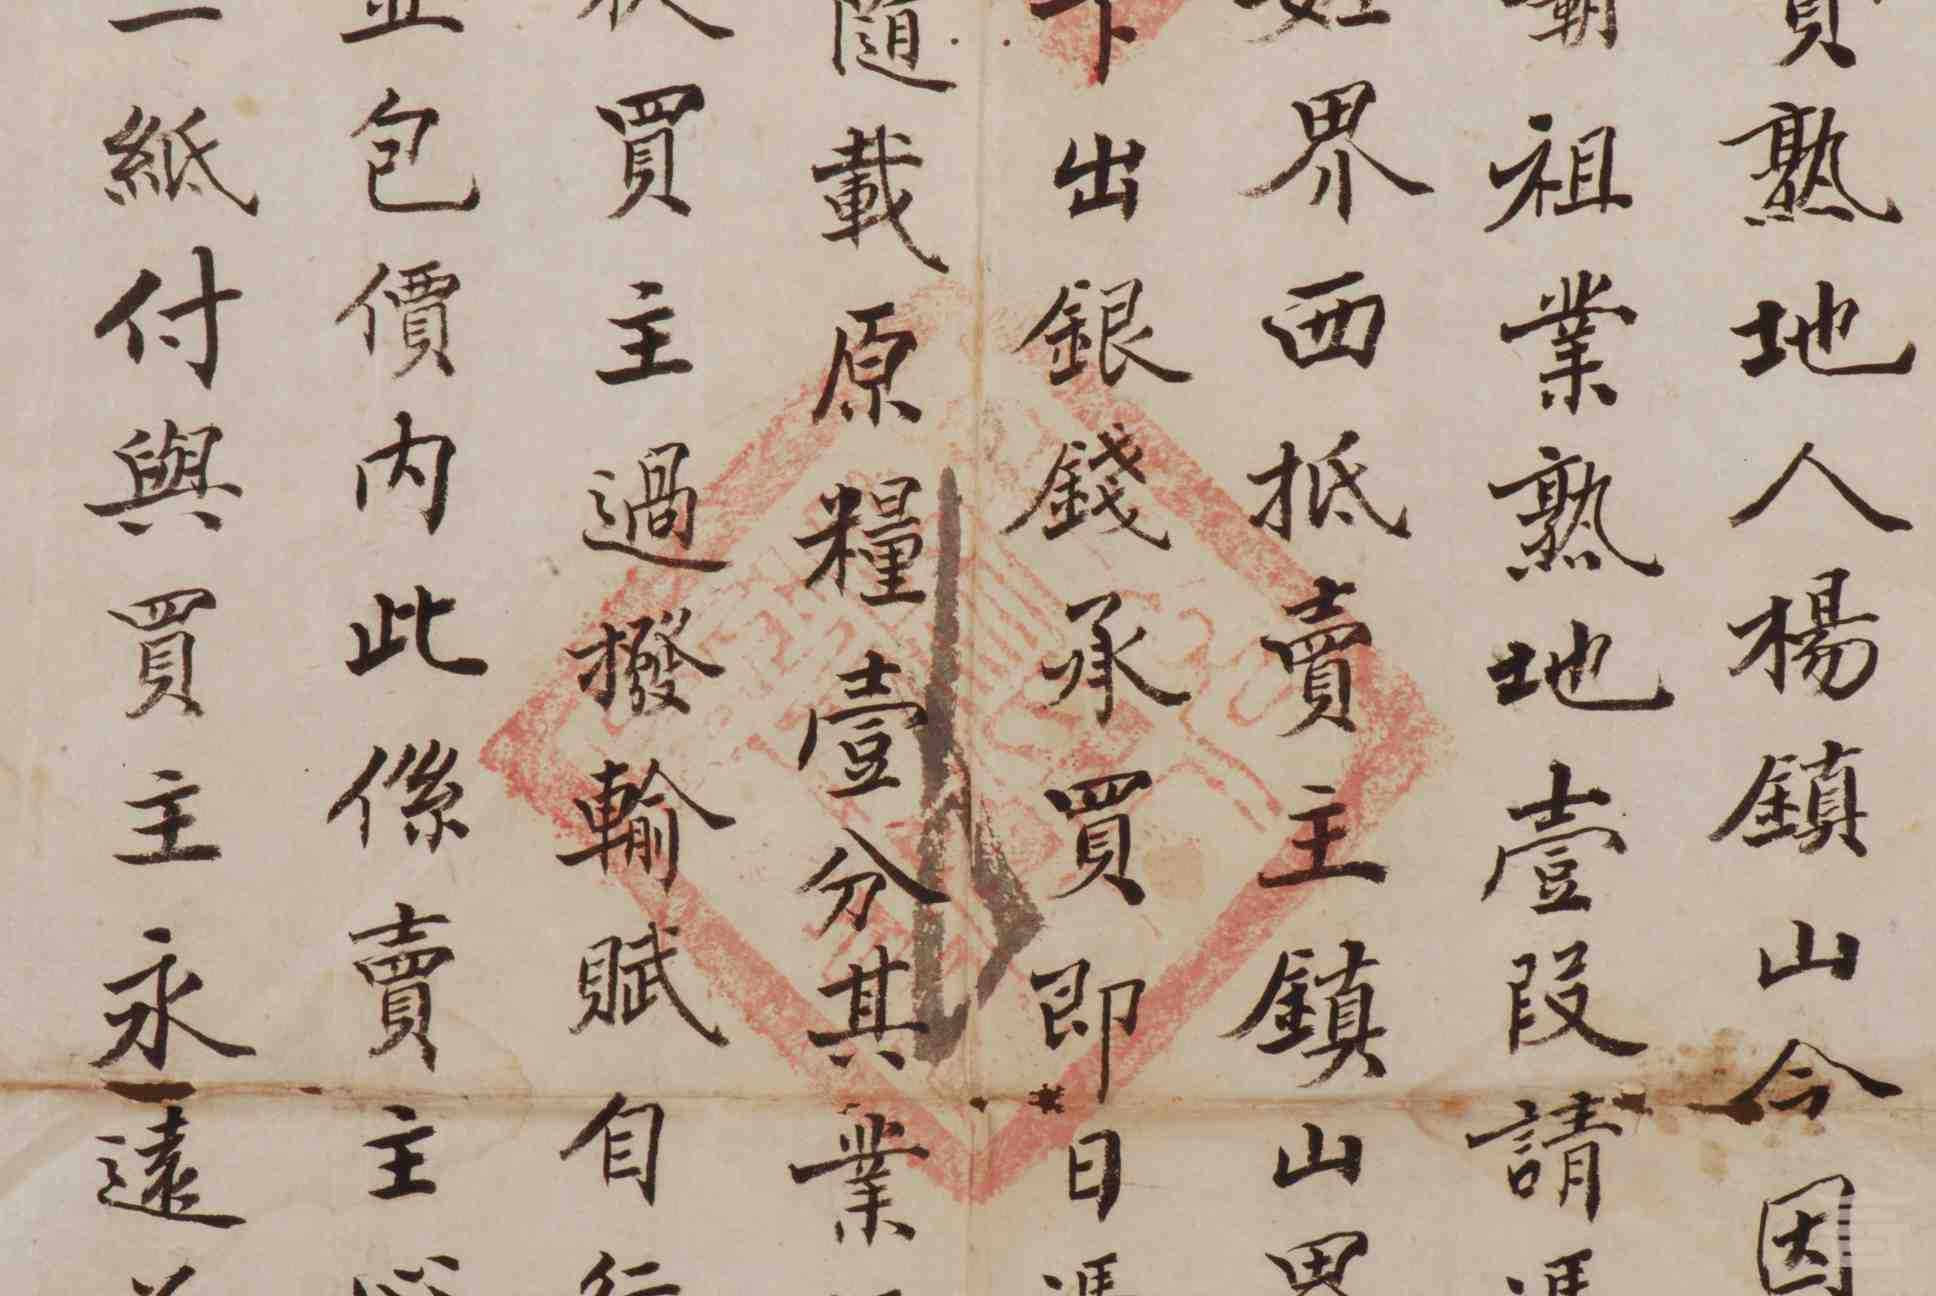 賣熟地人楊鎮山今因
霸祖業熟地壹段請馮
界西抵賣主鎮山界
下出銀錢承買即日馮
隨載原糧壹分其業
買主過撥輸賦自行
並包價內此係賣主
一紙付與買主永遠